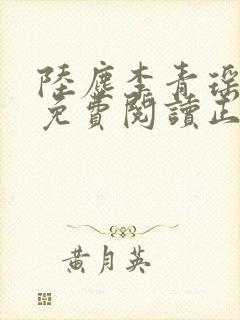 陸塵李青瑤
免費閱讀正
黃月英